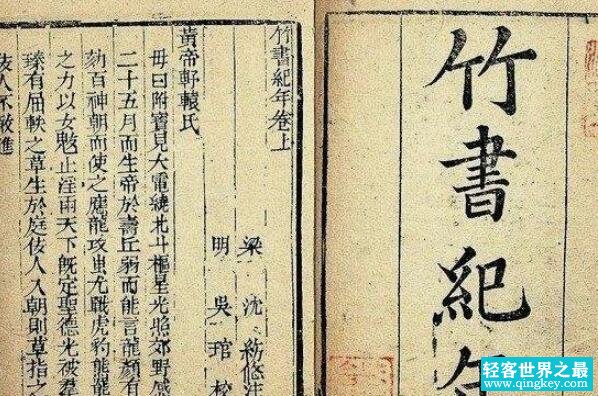 竹書紀年
竹書紀年卷上
梁 沈
明 吳 琯 校
黃帝軒轅氏
母曰附寶見大電繞北斗樞星光照郊野感
二十五月而生帝於壽丘弱而能言龍顏有
劾百神朝而使之應龍攻蚩尤戰虎豹熊羆
之力以女魃止淫雨天下既定聖德光被羣
臻有屈軼之草生於庭佞人入朝則草指之
佞人不敢進
轻客世界之最
www.qingkey.com